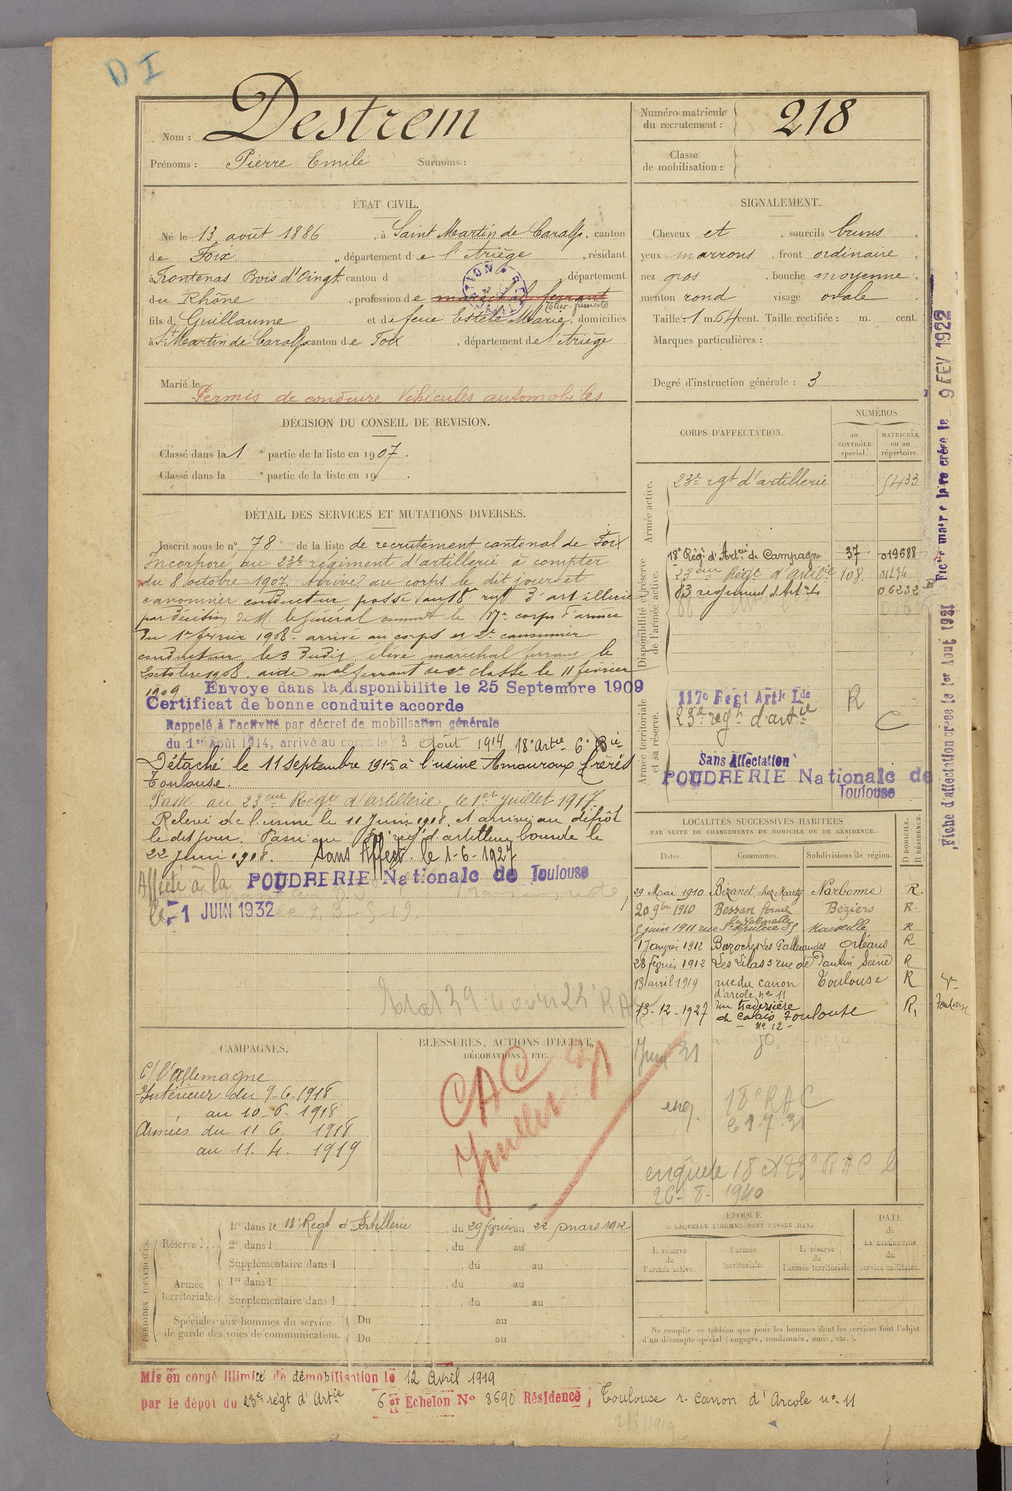 D I
Nom : Destrem
Prénoms : Pierre Emile Surnoms :
Numéro matricule du recrutement : 218
Classe de mobilisation :
ÉTAT CIVIL.
Né le 13 août 1886, à Saint Martin de Caralp, canton
de Foix, département de l'Ariège, résidant
à Frontenas Bois d'Oingt canton d , département
du Rhône, profession de maréchal ferrant
fils d Guillaume et de feue Estèle Marie, domiciliés
à St Martin de Caralp canton de Foix, département de l'Ariège
Marié le
Permis de conduire Véhicules automobiles
SIGNALEMENT.
Cheveux et , sourcils bruns
yeux marrons , front ordinaire
nez gros , bouche moyenne
menton rond visage ovale
Taille : 1 m. 64 cent. Taille rectifiée : m. cent.
Marques particulières :
Degré d'instruction générale : 3
DÉCISION DU CONSEIL DE REVISION.
Classé dans la 1 e partie de la liste en 1907.
Classé dans la e partie de la liste en 19 .
CORPS D'AFFECTATION.
NUMÉROS
au CONTRÔLE spécial.
MATRICULE ou au répertoire.
Armée active.
23e rgt d'artillerie 5433
Disponibilité et réserve de l'armée active.
18e Régt d'Artrie de Campagne 37 019688
23eme Régt d'artrie 108
Armée territoriale et sa réserve.
117e Régt Artie Lde R
23e regt d'artie C
Sans Affectation
POUDRERIE Nationale de
Toulouse
DÉTAIL DES SERVICES ET MUTATIONS DIVERSES.
Inscrit sous le n° 78 de la liste de recrutement cantonal de Foix
Incorporé au 23e régiment d'artillerie à compter
du 8 octobre 1907. Arrivé au corps le dit jour et
canonnier conducteur passé au 18e rgt d'artillerie
par décision de M. le Général commt le 17e corps d'armée
du 1er février 1908. arrivé au corps et 2e canonnier
conducteur le 3 dudit élève maréchal ferrant le
octobre 1908. aide mal ferrant de 2e classe le 11 février
1909 Envoye dans la disponibilite le 25 Septembre 1909
Certificat de bonne conduite accorde
Rappelé à l'activité par décret de mobilisation générale
du 1er Août 1914, arrivé au corps le 3 Août 1914 18e Artie 6e Bie
Détaché le 11 Septembre 1915 à l'usine Amouroux frères
Toulouse.
Passé au 23eme Régt d'artillerie, le 1er juillet 1917.
Relevé de l'usine le 11 Juin 1918, et arrivé au dépôt
le dit jour. Passé au regt d'artillerie lourde le
22 Juin 1918. Sans Affect. le 1-6-1927
Affecté à la POUDRERIE Nationale de Toulouse
le 1 JUIN 1932
LOCALITÉS SUCCESSIVES HABITÉES
PAR SUITE DE CHANGEMENTS DE DOMICILE OU DE RÉSIDENCE.
Dates. Communes. Subdivisions de région. D DOMICILE. R RÉSIDENCE.
29 Mai 1910 Bizanet, chez Narbonne R.
20 9bre 1910 Bessan ferme Béziers R.
5 juin 1911 Marseille R
17 1912 Bazoches les Gallerandes Orléans R
28 février 1912 Les Lilas 3 rue de Pantin Seine R
13 avril 1919 rue du canon d'arcole n° 11 Toulouse R
13-12-1927 rue traversière de Calais n° 12 Toulouse R
Juin 31
enq. 18e RAC
enquête 18 et 23e RAC le
26-8-1940
CAMPAGNES.
C/ l'Allemagne
Intérieur du 9-6-1918
au 10-6-1918
Armées du 11 6. 1918
au 11. 4. 1919
BLESSURES, ACTIONS D'ÉCLAT,
DÉCORATIONS, ETC.
CAC
Juillet 31
PÉRIODES D'EXERCICES.
Réserve... 1re dans le 18e Régt d'Artillerie du 29 février au 22 mars 1912
2e dans l du au
Supplémentaire dans l du au
Armée territoriale. 1re dans l du au
Supplémentaire dans l du au
Spéciales aux hommes du service de garde des voies de communication. Du au
Du au
ÉPOQUE
À LAQUELLE L'HOMME DOIT PASSER DANS
la réserve de l'armée active.
l'armée territoriale.
la réserve de l'armée territoriale
DATE de LA LIBÉRATION du service militaire.
Ne remplir ce tableau que pour les hommes dont les services font l'objet
d'un décompte spécial (engagés, condamnés, omis, etc.).
Mis en congé illimité de démobilisation le 12 Avril 1919
par le dépôt du 23e régt d'Artie 6e Echelon N° 8690 Résidence, Toulouse r. Canon d'Arcole n° 11
Fiche d'affectation créée le 1er Août 1931
Fiche matriculaire créée le 9 FEV 1922